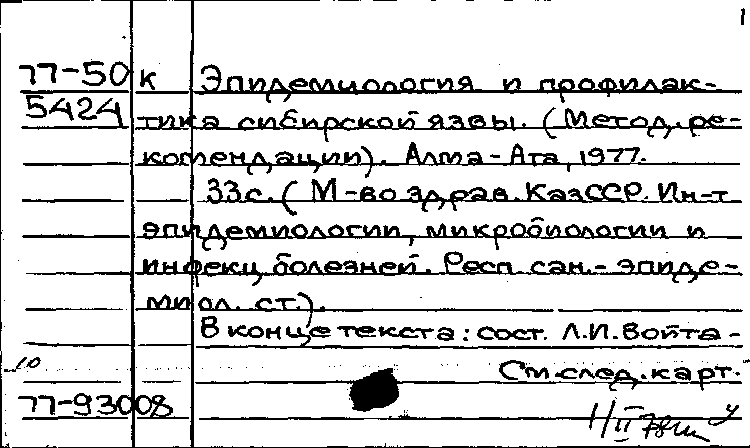 1
77-50 к Эпидемиология и профилак-
5424 тика сибирской язвы. (Метод. ре-
комендации). Алма-Ата, 1977.
33с. (М-во здрав. КазССР. Ин-т
эпидемиологии, микробиологии и
инфекц. болезней. Респ. сан.-эпиде-
миол. ст.).
В конце текста: сост. Л.И. Войта-
10 См. след. карт.
77-93008
1/II 78